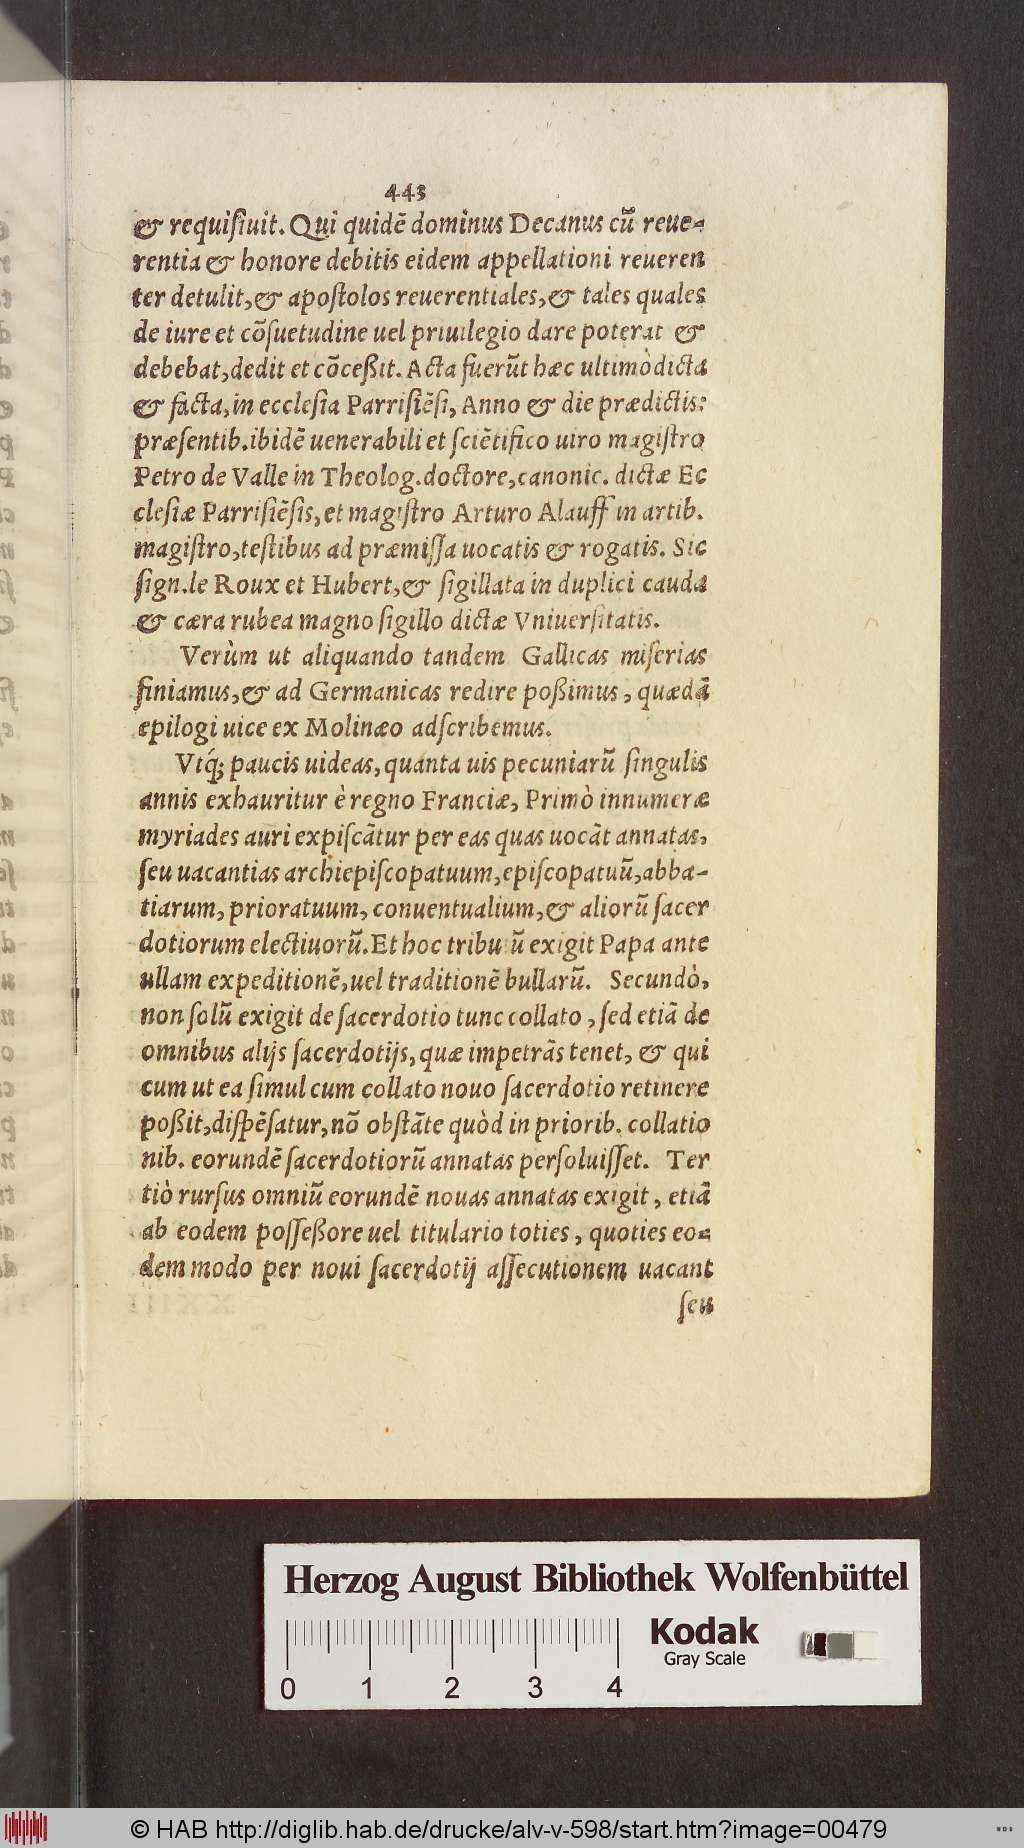 443
& requiſiuit. Qui quidẽ dominus Decanus cũ reue-
rentia & honore debitis eidem appellationi reueren
ter detulit, & apoſtolos reuerentiales, & tales quales
de iure et cõſuetudine uel priuilegio dare poterat &
debebat, dedit et cõceßit. Acta fuerũt hæc ultimò dicta
& facta, in eccleſia Parriſiẽſi, Anno & die prædictis:
præſentib. ibidẽ uenerabili et ſciẽtifico uiro magiſtro
Petro de Valle in Theolog. doctore, canonic. dictæ Ec
cleſiæ Parriſiẽſis, et magiſtro Arturo Alauff in artib.
magiſtro, teſtibus ad præmiſſa uocatis & rogatis. Sic
ſign. le Roux et Hubert, & ſigillata in duplici cauda
& cæra rubea magno ſigillo dictæ Vniuerſitatis.
Verùm ut aliquando tandem Gallicas miſerias
finiamus, & ad Germanicas redire poßimus, quædã
epilogi uice ex Molinæo adſcribemus.
Vtq́; paucis uideas, quanta uis pecuniarũ ſingulis
annis exhauritur è regno Franciæ, Primò innumeræ
myriades auri expiſcãtur per eas quas uocãt annatas,
ſeu uacantias archiepiſcopatuum, epiſcopatuũ, abba-
tiarum, prioratuum, conuentualium, & aliorũ ſacer
dotiorum electiuorũ. Et hoc tribu ũ exigit Papa ante
ullam expeditionẽ, uel traditionẽ bullarũ. Secundò,
non ſolũ exigit de ſacerdotio tunc collato, ſed etiã de
omnibus alijs ſacerdotijs, quæ impetrãs tenet, & qui
cum ut ea ſimul cum collato nouo ſacerdotio retinere
poßit, diſpẽſatur, nõ obſtãte quòd in priorib. collatio
nib. eorundẽ ſacerdotiorũ annatas perſoluiſſet. Ter
tiò rurſus omniũ eorundẽ nouas annatas exigit, etiã
ab eodem poſſeßore uel titulario toties, quoties eo-
dem modo per noui ſacerdotij aſſecutionem uacant
ſeu
Herzog August Bibliothek Wolfenbüttel
Kodak
Gray Scale
0 1 2 3 4
© HAB http://diglib.hab.de/drucke/alv-v-598/start.htm?image=00479